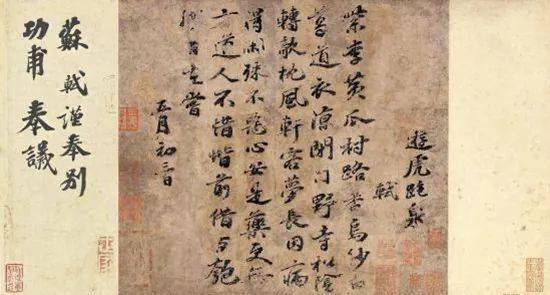 遊虎跑泉
軾
紫李黃瓜村路香烏紗白
葛道衣涼閉門野寺松陰
轉欹枕風軒客夢長因病
得閑殊不惡心安是藥更無
方道人不惜階前借與匏
嘗
五月初
蘇軾謹奉別
功甫奉議